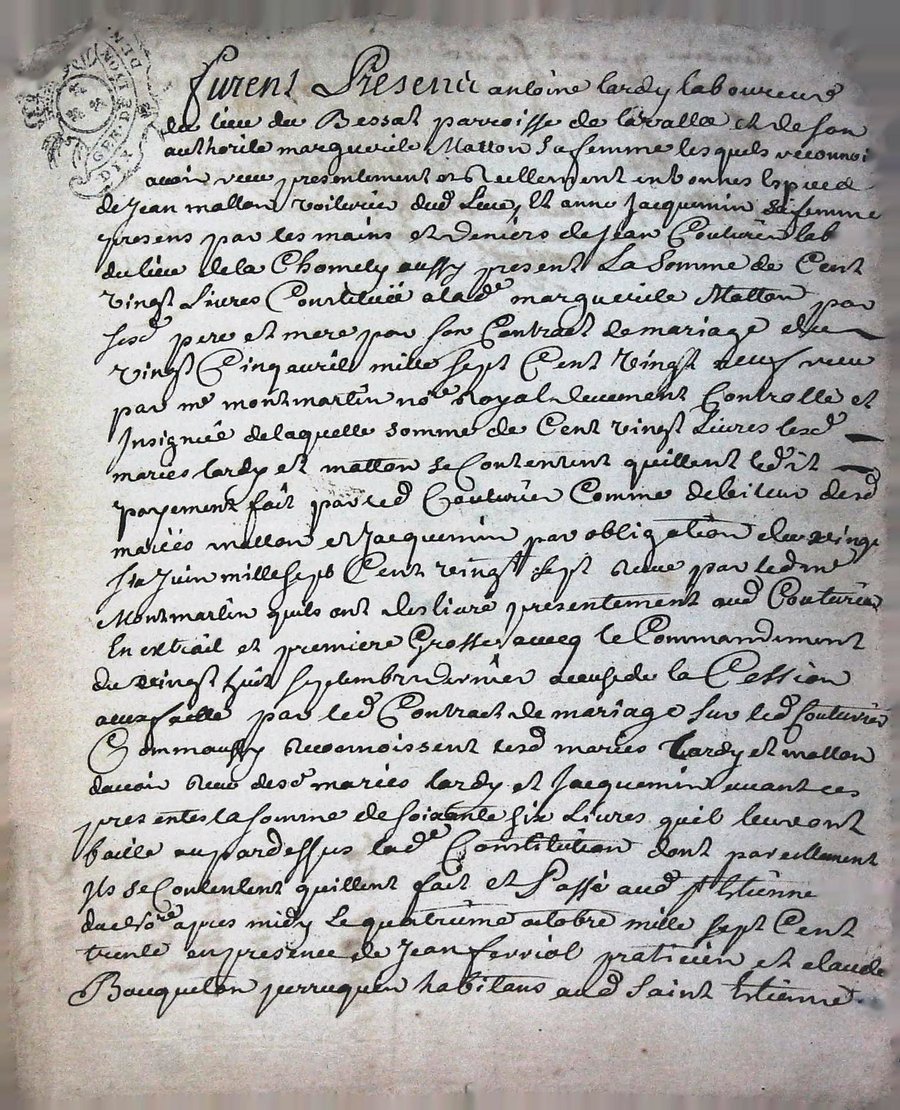 GEN DE LYON
DIX DEN
furent Presents antoine tardy laboureur
du lieu du Bessat parroisse de lavalla et de son
authorité marguerite Matton sa femme lesquels reconnoi
avoir receu presentement et reellement en bonnes Especes
de Jean matton voiturier dud Lieu, Et anne Jacquemin sa femme
presens par les mains et deniers de Jean Couturier lab
du lieu de la Chomety aussy present La Somme de Cent
vingt Livres Constituée a lad.e marguerite Matton par
sesd. pere et mere par son Contract de mariage du
vingt Cinq avril mille sept Cent vingt neuf receu
par me montmartin no.re Royal deuement Controllé et
Insignué de laquelle somme de Cent vingt Livres lesd.
mariés tardy et matton se Contentent quittent led.t
payement fait par led Couturier Comme debiteur desd
mariés matton et Jacquemin par obligation du vingt
six Juin mille sept Cent vingt sept receue par led me
Montmartin quils ont deslivré presentement aud Couturier
En extrait et premiere Grosse avecq le Commandement
du vingt huit septembre dernier a cause de la Cession
a eux faitte par led Contract de mariage sur led Couturier
Comm aussy reconnoissent lesd mariés tardy et matton
davoir receu desd. mariés tardy et Jacquemin avant ces
presentes la somme de soixante six Livres quil leur ont
baillé au pardessus lad.e Constitution dont pareillement
Ils se Contentent quittent fait et Passé aud st Etienne
apres midy Le quatrieme octobre mille sept Cent
trente en presence de Jean ferriol praticien et claude
Bouqueton perruquier habitans aud Saint Etienne.